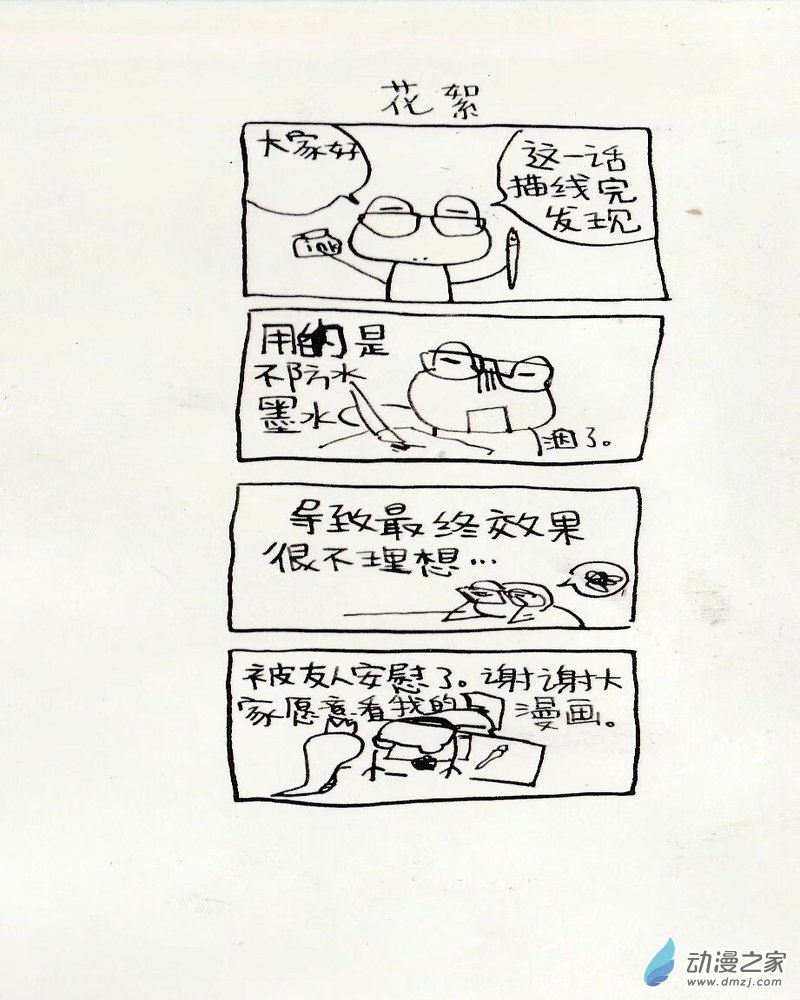 花絮
大家好
这一话
描线完
发现
ink
用的是
不防水
墨水
洇了。
导致最终效果
很不理想…
被友人安慰了。谢谢大
家愿意看我的漫画。
动漫之家
www.dmzj.com